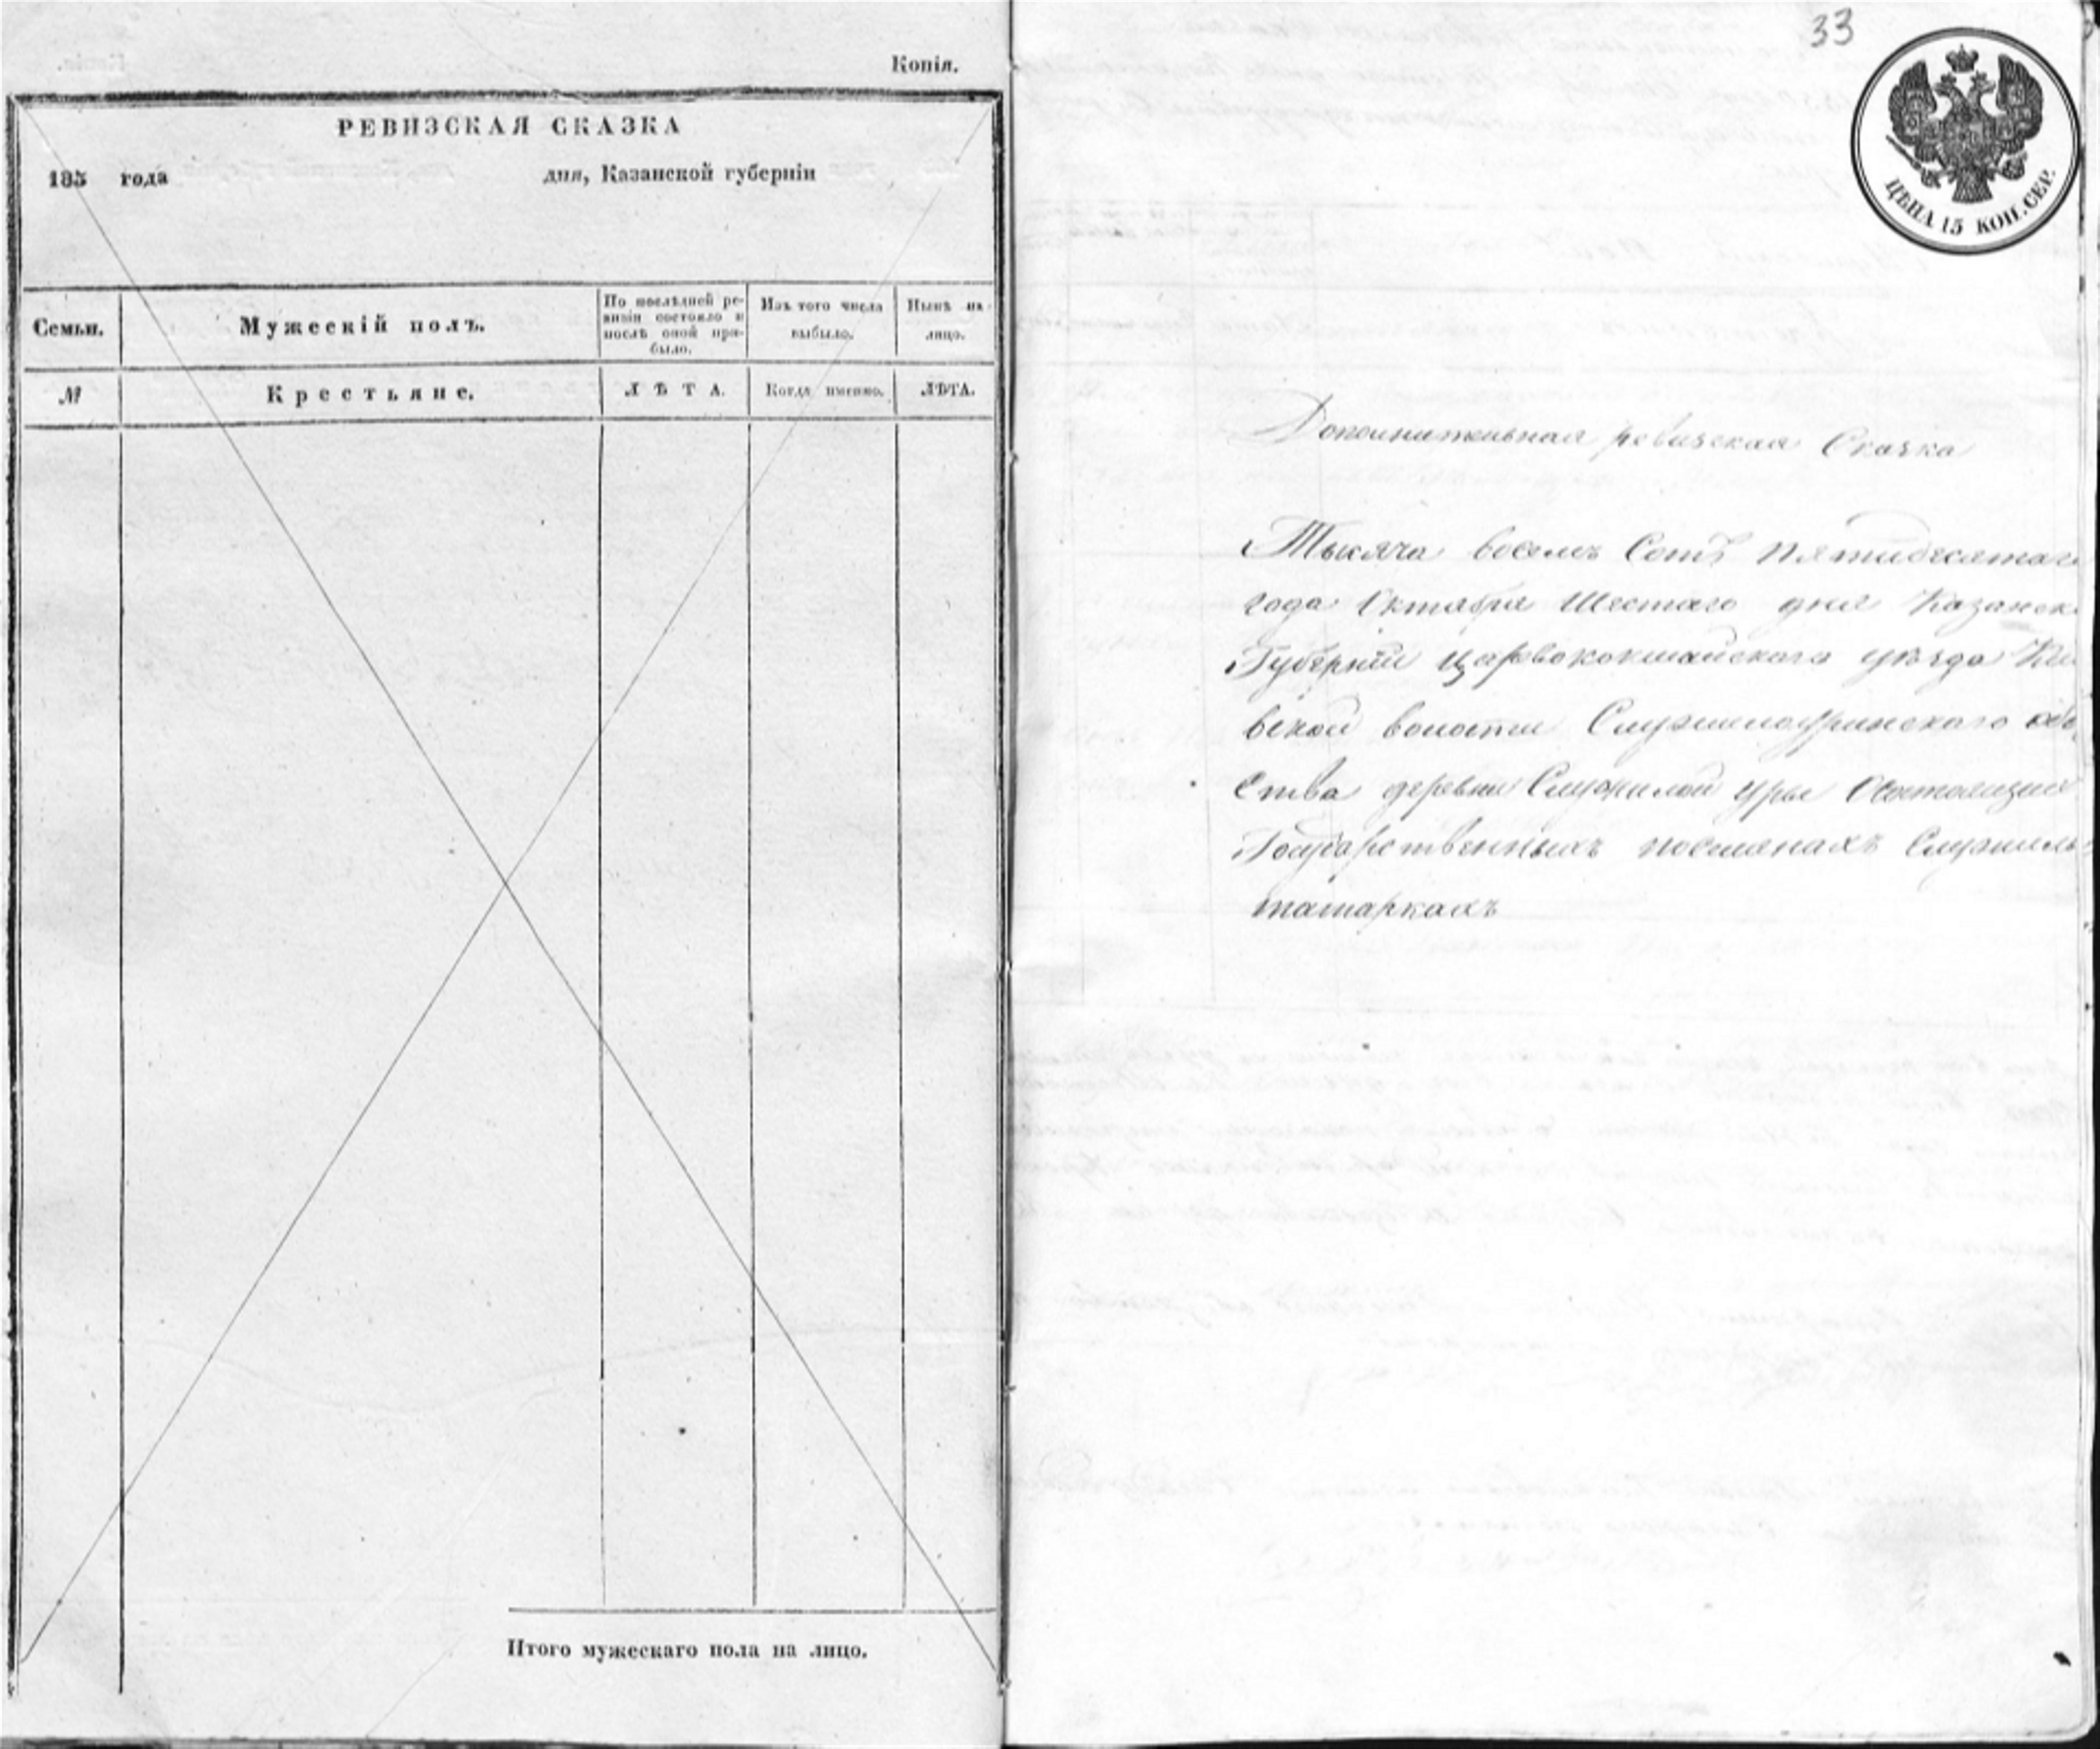 Копія.
РЕВИЗСКАЯ СКАЗКА
185 года дня, Казанской губерніи
Семьи.
Мужескій полъ.
По послѣдней ре-
визіи состояло и
послѣ оной при-
было.
Изъ того числа
выбыло.
Нынѣ на-
лицо.
№
Крестьяне.
ЛѢТА.
Когда именно.
ЛѢТА.
Итого мужескаго пола на лицо.
33
ЦѢНА 15 КОП. СЕР.
Дополнительная ревизская Сказка
Тысяча восемь Сотъ Пятидесятаго
года Октября Шестаго дня Казанск
Губерніи Царевококшайскаго уѣзда
вской волости Служилоуринскаго обще
ства деревни Служилой Уры Состоящихъ
Государственныхъ поселянахъ Служилыхъ
татаркахъ